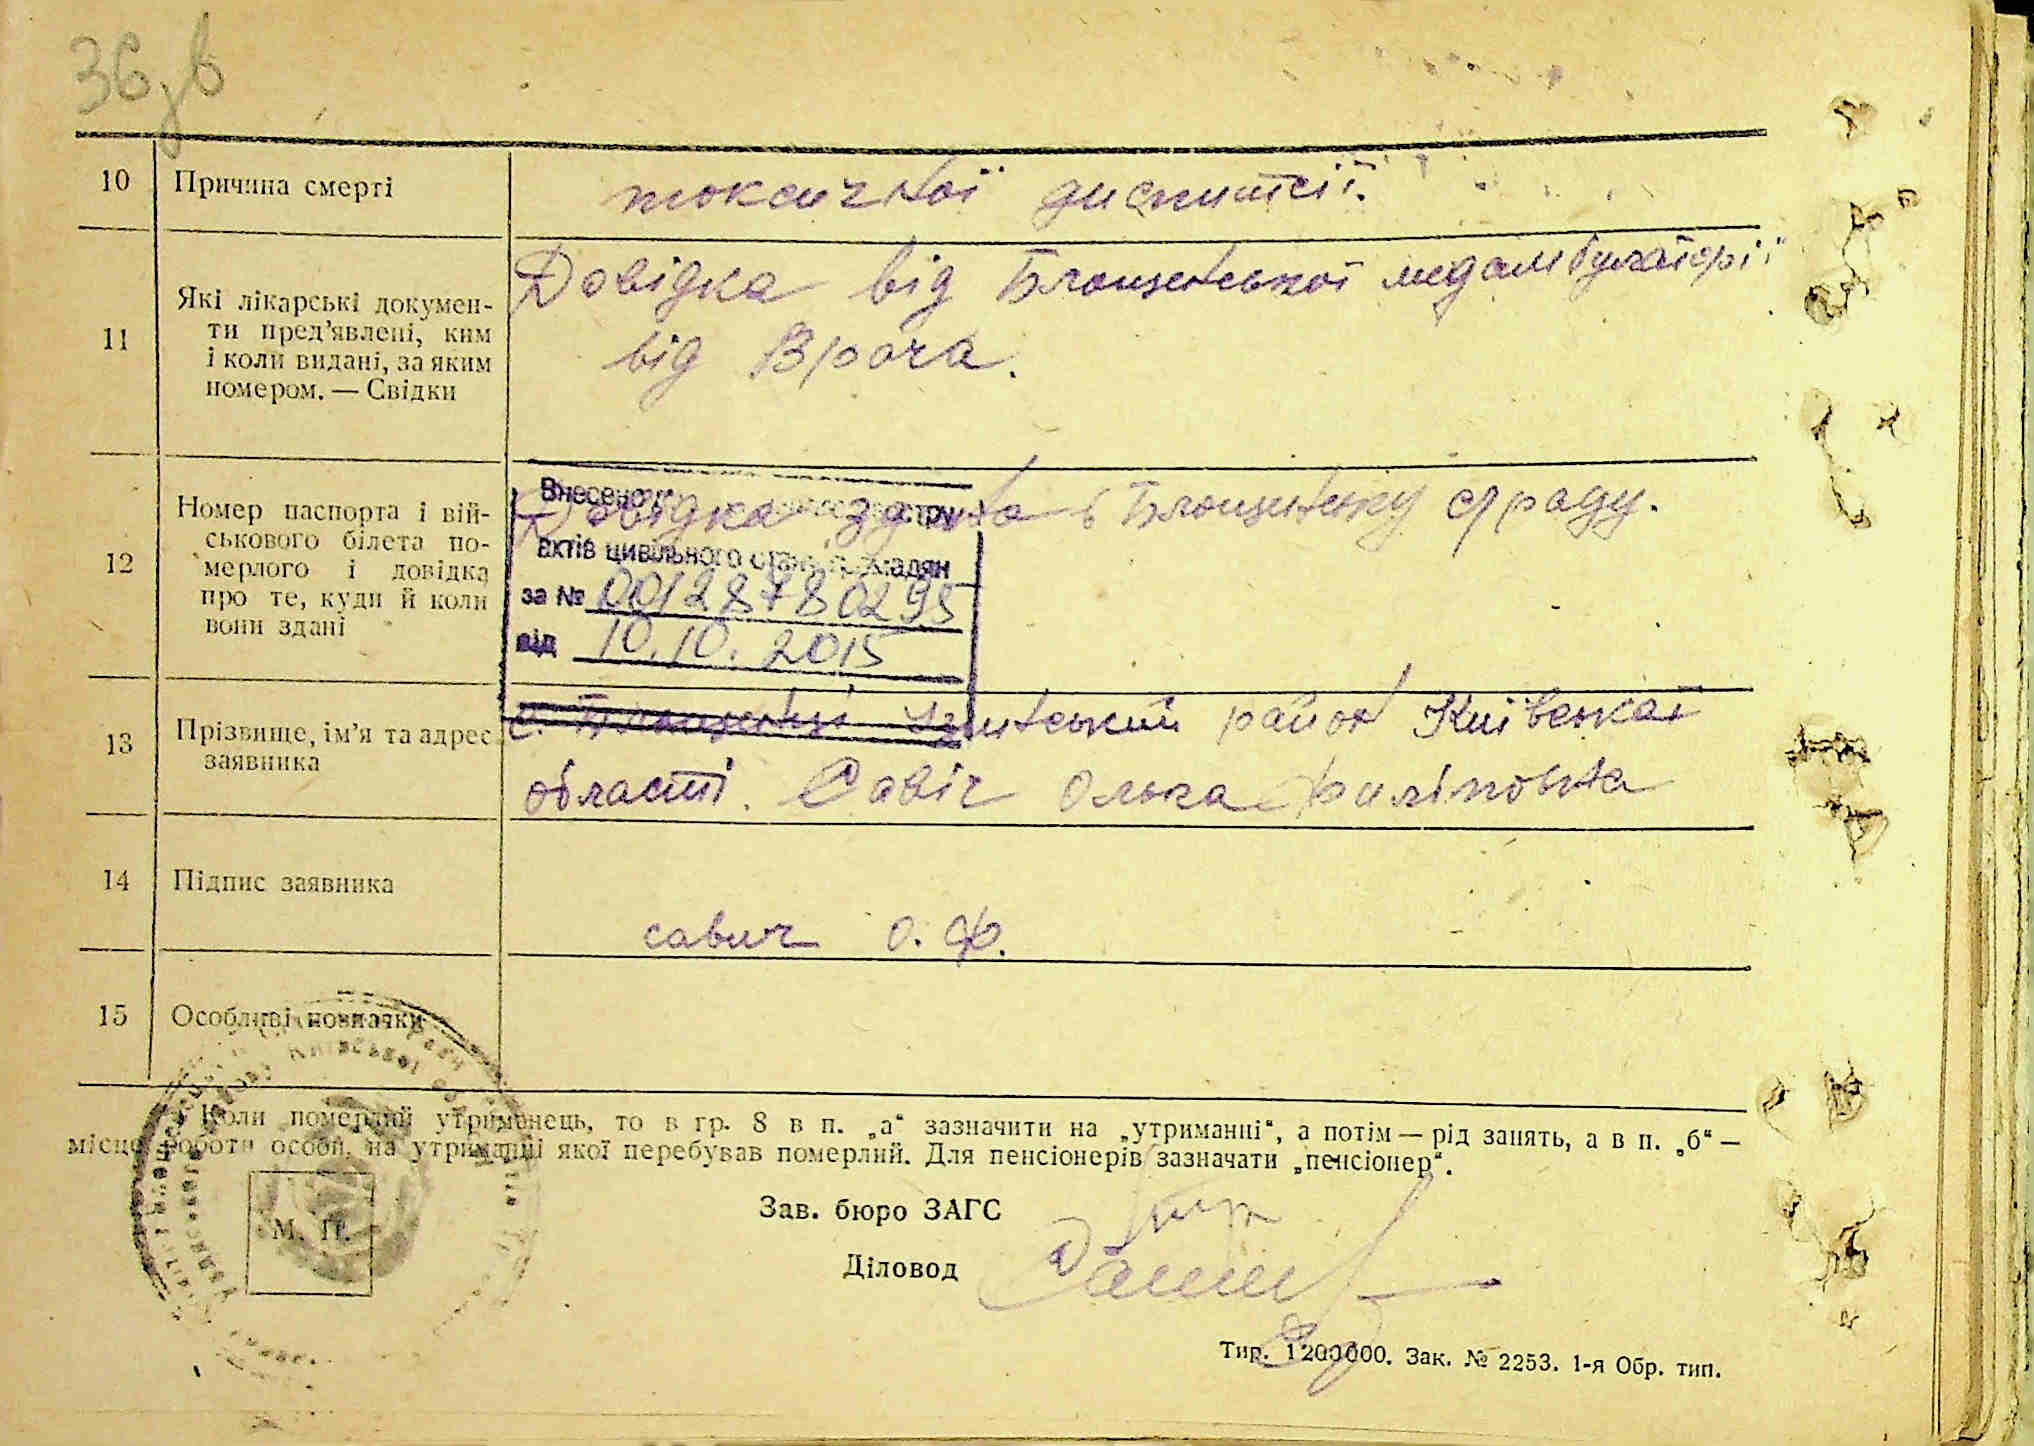 36
10 Причина смерті токсичної диспипсії.
11 Які лікарські докумен-
ти пред’явлені, ким
і коли видані, за яким
номером. — Свідки
Довідка від Блощинської медамбулаторії
від Врача.
12 Номер паспорта і вій-
ськового білета по-
мерлого і довідка
про те, куди й коли
вони здані
Довідка здана в Блощинську с/раду.
Внесено
актів цивільного стану громадян
за № 00128780295
від 10.10.2015
13 Прізвище, ім’я та адрес
заявника
с. Блощинці Узинський район Київської
області. Савіч Олька Филіповна
14 Підпис заявника
савич О. Ф.
15 Особливі позначки
Коли померлий утриманець, то в гр. 8 в п. „а“ зазначити на „утриманні“, а потім — рід занять, а в п. „б“ —
місце роботи особи, на утриманні якої перебував померлий. Для пенсіонерів зазначати „пенсіонер“.
М. П.
Зав. бюро ЗАГС
Діловод
Тир. 1200000. Зак. № 2253. 1-я Обр. тип.